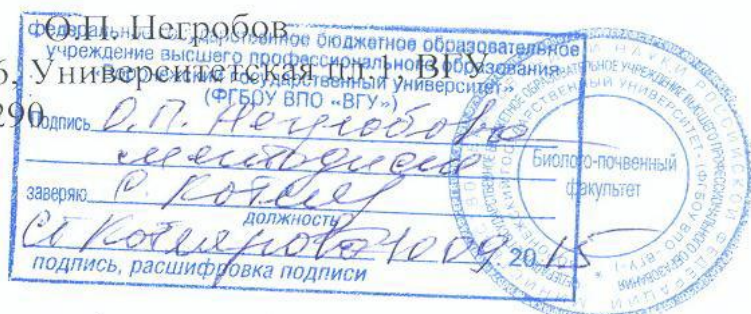 О.П. Негробов
6, Университетская пл.1, ВГУ
290
федеральное государственное бюджетное образовательное
учреждение высшего профессионального образования
«Воронежский государственный университет»
(ФГБОУ ВПО «ВГУ»)
Подпись О.П. Негробова
заверяю
должность
С. Котлярова 10 09. 2015
подпись, расшифровка подписи
Биолого-почвенный
факультет